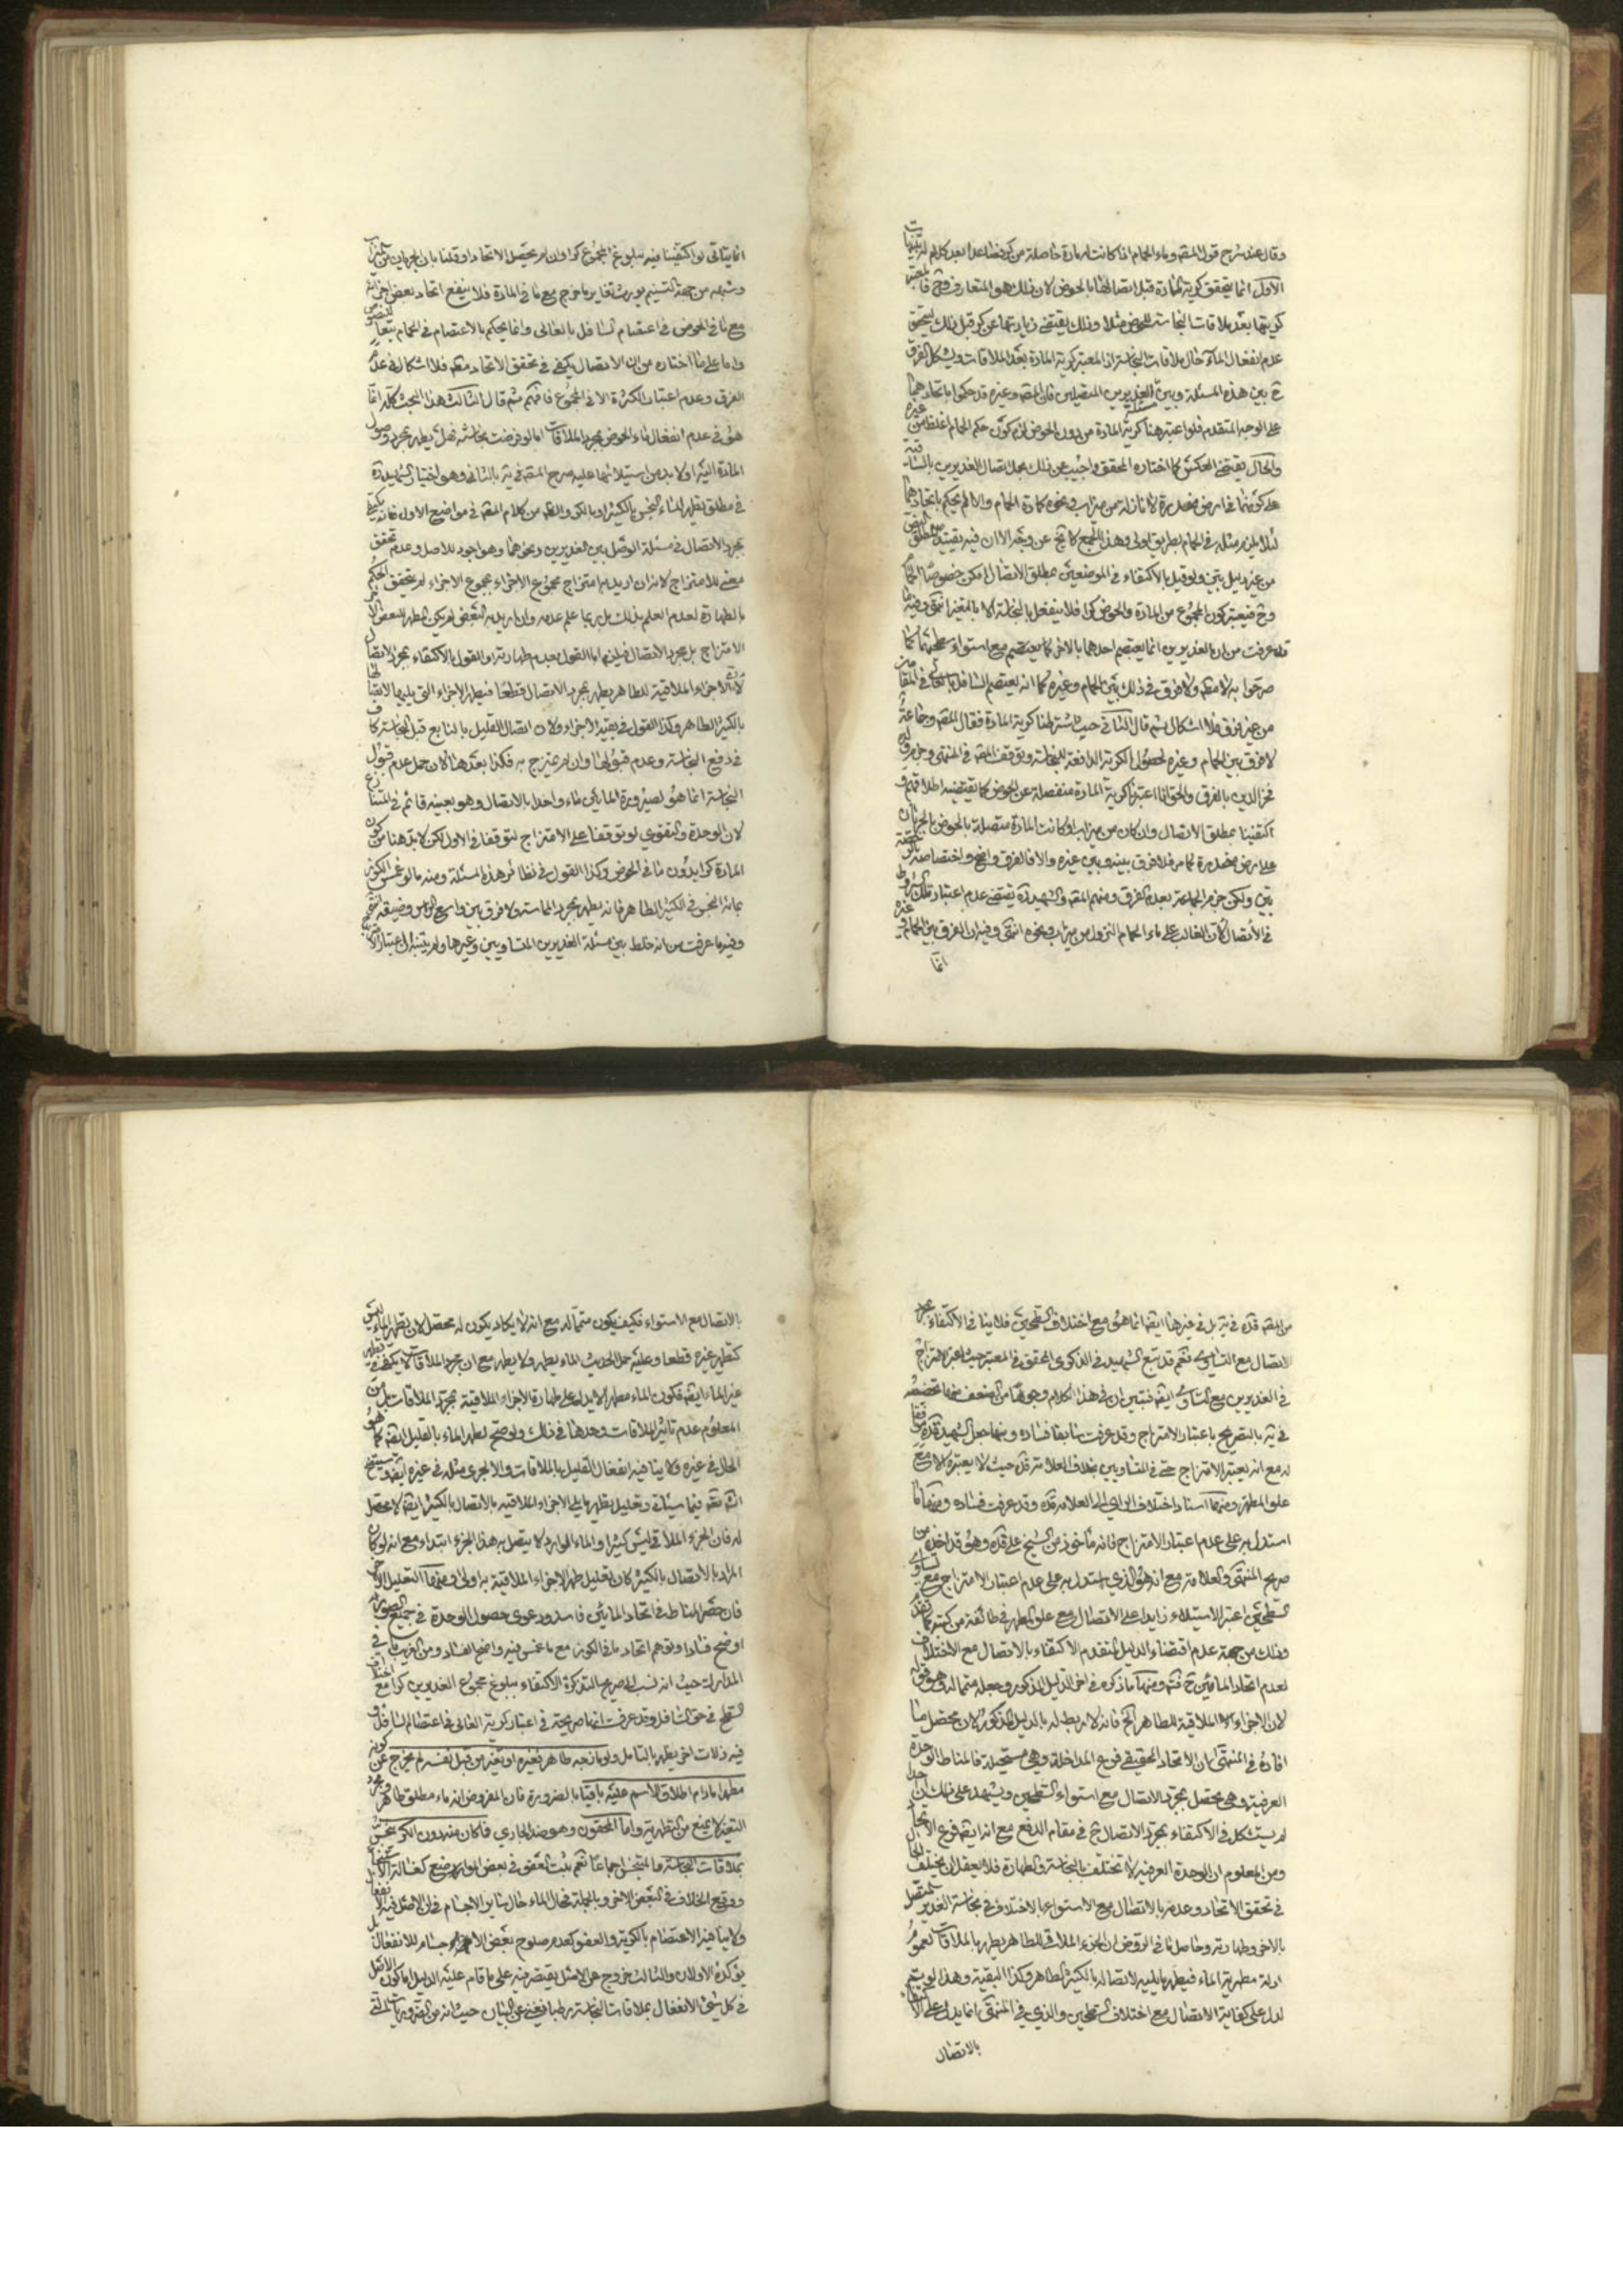 وقال عند شرح قول المصنف وماء الحمام اذا كانت له مادة حاصلة من كر فصاعدا بعد كلام له تنبيهات
الاول انما يتحقق كرية المادة قبل اتصالها بالحوض لان ذلك هو المتعارف وح فالمعتبر
كريتها بعد ملاقات النجاسة للحوض مثلا وذلك يقتضي زيادتها عن كر قبل ذلك ليتحقق
عدم انفعال الماء حال ملاقات النجاسة اذ المعتبر كرية المادة بعد الملاقات ويشكل الفرق
ح بين هذه المسئلة وبين الغديرين المتصلين فان المصنف وغيره قد حكموا باتحادهما
على الوجه المتقدم فلو اعتبر هنا كرية المادة من دون الحوض لزم كون حكم الحمام اغلظ من غيره
والحال يقتضي العكس كما اختاره المحقق واجيب عن ذلك بحمل اتصال الغديرين بالساقية
على كونها في ارض منحدرة لا نازلة من ميزاب ونحوه كمادة الحمام والا لم يحكم باتحادهما
لئلا يلزم مثله في الحمام بطريق اولى وهذا الجمع لا يخ عن وجه الا ان فيه تقييد مطلق النص
من غير دليل بين ولو قيل بالاكتفاء في الموضعين بمطلق الاتصال امكن خصوصا الحمام
وح فيعتبر كون المجموع من المادة والحوض كرا فلا ينفعل بالنجاسة الا بالتغير انتهى وفيه ما
قد عرفت من ان الغديرين انما يعتصم احدهما بالاخر كما يعتصم مع استواء سطحيهما كما
صرحوا به لا مطلقا ولا فرق في ذلك بين الحمام وغيره كما انه يعتصم السافل بالعالي في المقامين
من غير فرق فلا اشكال ثم قال الثاني حيث اشترطنا كرية المادة فقال المصنف وجماعة
لا فرق بين الحمام وغيره لحصول الكرية الدافعة للنجاسة وتوقف المصنف في المنتهى وجزم ولده
فخر الدين بالفرق والحق انا ان اعتبرنا كرية المادة منفصلة عن الحوض كما يقتضيه اطلاقهم و
اكتفينا بمطلق الاتصال وان كان من ميزاب او كانت المادة متصلة بالحوض بالجريان
على ارض منحدرة كما مر فلا فرق بينه وبين غيره والا فالفرق واضح واختصاصه بالرخصة
بين ولكن جزم الجماعة بعدم الفرق ومنهم المصنف والشهيد ره يقتضي عدم اعتبار تلك الشروط
في الاتصال لان الغالب على ماء الحمام النزول من ميزاب ونحوه انتهى وفيه ان الفرق بين الحمام وغيره
انما
انما يتاتى لو اكتفينا فيه ببلوغ المجموع كرا وان لم يحصل الاتحاد او قلنا بان الجريان من ميزاب
وشبهه من جهة التسنيم يورث تغاير ما خرج مع ما في المادة فلا ينفع اتحاد بعض اجزائه
مع ما في الحوض في اعتصام السافل بالعالي وانما يحكم بالاعتصام في الحمام تبعا للنصوص
واما على ما اختاره من ان الاتصال يكفي في تحقق الاتحاد مطلقا فلا اشكال في عدم
الفرق وعدم اعتبار الكثرة الا في المجموع فافهم ثم قال الثالث هذا البحث كله انما
هو في عدم انفعال ماء الحوض بمجرد الملاقات اما لو فرضت نجاسته فهل يطهر بمجرد وصول
المادة اليه او لا بد من استيلائها عليه صرح المصنف في ير بالثاني وهو اختيار الشهيد ره
في مطلق تطهير الماء النجس بالكثير او بالكر والظ من كلام المصنف في مواضع الاول فانه يكتفي
بمجرد الاتصال في مسئلة الوصل بين الغديرين ونحوهما وهو اجود للاصل وعدم تحقق
معنى للامتزاج لانه ان اريد به امتزاج مجموع الاجزاء بمجموع الاجزاء لم يتحقق الحكم
بالطهارة لعدم العلم بذلك بل ربما علم عدمه وان اريد به البعض لم يكن المطهر للبعض الاخر
الامتزاج بل مجرد الاتصال فيلزم اما القول بعدم طهارته او القول بالاكتفاء بمجرد الاتصال
لان الاجزاء الملاقية للطاهر يطهر بمجرد الاتصال قطعا فيطهر الاجزاء التي يليها لاتصالها
بالكثير الطاهر وكذا القول في بقية الاجزاء ولان اتصال القليل بالنابع قبل النجاسة كاف
في دفع النجاسة وعدم قبوله لها وان لم يمتزج به فكذا بعدها لان حمل عدم قبول
النجاسة انما هو لصيرورة المائين ماء واحدا بالاتصال وهو بعينه قائم في المتنازع
لان الوحدة والتقوي لو توقفا على الامتزاج لتوقفا في الاول لكن لا بد هنا من كون
المادة كرا بدون ما في الحوض وكذا القول في نظائر هذه المسئلة ومنه ما لو غمس الكوز
بمائه النجس في الكثير الطاهر فانه يطهر بمجرد المماسة ولا فرق بين واسع الراس وضيقه انتهى
وفيه ما عرفت من انه خلط بين مسئلة الغديرين المتساويين وغيرها ولم يتنبه ان اعتبار الامتزاج
من المصنف قده في ير بل في غيرها ايضا انما هو مع اختلاف السطحين فلا ينافي الاكتفاء بمجرد
الاتصال مع التساوي نعم قد تبع الشهيد في الذكرى المحقق في المعتبر حيث اعتبر الامتزاج
في الغديرين مع التساوي ايضا فتبين ان في هذا الكلام وجوها من الضعف منها تخصيصه
في ير بالتصريح باعتبار الامتزاج وقد عرفت سابقا فساده ومنها جعل الشهيد قده موافقا
له مع انه يعتبر الامتزاج حتى في المتساويين بخلاف العلامة قده حيث لا يعتبره الا مع
علو المطهر ومنها اسناد اختلاف الراي الى العلامة قده وقد عرفت فساده ومنها ما
استدل به على عدم اعتبار الامتزاج فانه ماخوذ من الشيخ علي قده وهو قد اخذه من
صريح المنتهى والعلامة مع انه هو الذي استدل به على عدم اعتبار الامتزاج مع تساوي
السطحين اعتبر الاستيلاء زايدا على الاتصال مع علو المطهر في طائفة من كتبه كما تقدم
وذلك من جهة عدم اقتضاء الدليل المتقدم الاكتفاء بالاتصال مع الاختلاف
لعدم اتحاد المائين ح فته ومنها ما ذكره في اخر الدليل المذكور وجعله متمما له وهو قوله
لان الاجزاء الملاقية للطاهر الخ فانه لا ربط له بالدليل المذكور لان محصل ما
افاده في المنتهى ان الاتحاد الحقيقي فرع المداخلة وهي مستحيلة فالمناط الوحدة
العرفية وهي تحصل بمجرد الاتصال مع استواء السطحين ويشهد على ذلك ان احدا
لم يستشكل في الاكتفاء بمجرد الاتصال ح في مقام الدفع مع انه ايضا فرع الاتحاد
ومن المعلوم ان الوحدة العرفية لا تختلف بالنجاسة والطهارة فلا يعقل ان يختلف الحال
في تحقق الاتحاد وعدمه بالاتصال مع الاستواء بالاختلاف في نجاسة الغدير المتصل
بالاخر وطهارته وحاصل ما في الروض ان الجزء الملاقي للطاهر يطهر بالملاقات لعموم
ادلة مطهرية الماء فيطهر ما يليه لاتصاله بالكثير الطاهر وكذا البقية وهذا لو تم
لدل على كفاية الاتصال مع اختلاف السطحين والذي في المنتهى انما يدل على الاكتفاء
بالاتصال
بالاتصال مع الاستواء فكيف يكون متمما له مع انه لا يكاد يكون له محصل لان تطهير الماء ليس
كتطهير غيره قطعا وعليه حمل الحديث الماء يطهر ولا يطهر مع ان مجرد الملاقات لا يكفي في تطهير
غير الماء ايضا فكون الماء مطهرا لا يدل على طهارة الاجزاء الملاقية بمجرد الملاقات بل من
المعلوم عدم تاثير الملاقات وحدها في ذلك ولو صح لطهر الماء بالقليل ايضا كما هو
الحال في غيره ولا ينافيه انفعال القليل بالملاقات والا لجرى مثله في غيره ايضا وسيتضح
انشه تعه فيما سيأتي وتعليل تطهير ما يلي الاجزاء الملاقية بالاتصال بالكثير ايضا لا محصل
له فان الجزء الملاقي ليس كثيرا والماء الوارد لا يتصل به هذا الجزء ابتداء مع انه لو كان
المراد بالاتصال بالكثير كان تعليل طهر الاجزاء الملاقية به اولى ومنها التعليل الاخير
فان حصر المناط في اتحاد المائين فاسد ودعوى حصول الوحدة في جميع الصور
اوضح فسادا وتوهم اتحاد ماء الكوز مع ما غمس فيه واضح الفساد ومن الغريب ما في
المدارك حيث انه نسب الى صريح التذكرة الاكتفاء ببلوغ مجموع الغديرين كرا مع اختلاف
السطح في حق السافل وقد عرفت انها صريحة في اعتبار كرية العالي في اعتصام السافل و
فيه زلات اخر يظهر بالتامل ولو مازجه طاهر فغيره او تغير من قبل نفسه لم يخرج عن كونه
مطهرا ما دام اطلاق الاسم عليه باقيا بالضرورة فان المفروض انه ماء مطلق طاهر ومجرد
التغير لا يمنع من التطهير به واما المحقون وهو ضد الجاري فما كان منه دون الكر ينجس
بملاقات النجاسة والمتنجس اجماعا نعم ثبت العفو في بعض المواضع كغسالة الاستنجاء
ووقع الخلاف في البعض الاخر وبالجملة فحال الماء حال سائر الاجسام في ان الاصل فيه الانفعال
ولا ينافيه الاعتصام بالكرية والعفو كعدم صلوح بعض الاجسام للانفعال بل
يؤكده الاولان والثالث خروج عن الاصل يقتصر فيه على ما قام عليه الدليل اما كون الاصل
في كل شئ الانفعال بملاقات النجاسة برطوبة فغني عن البيان حيث انه من الضروريات التي